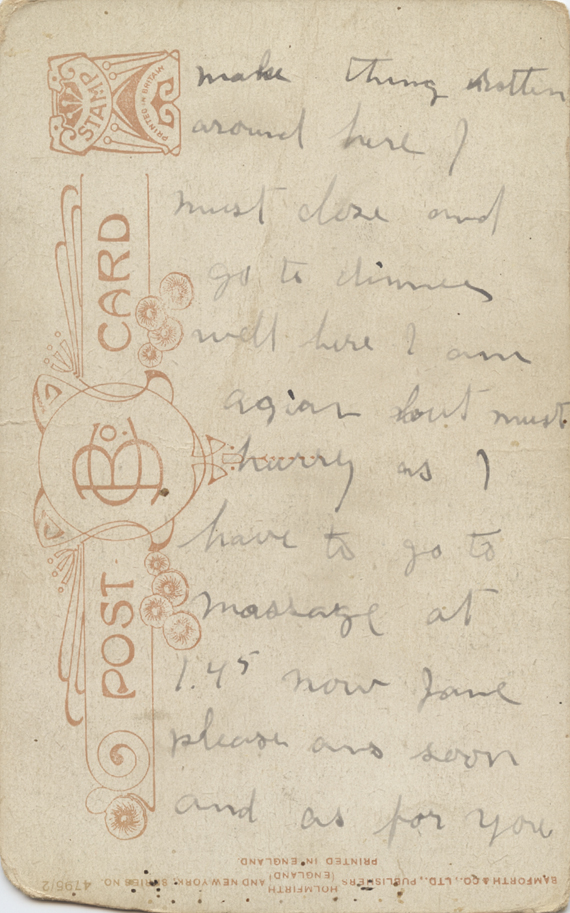 make thing rotten
around here I
must close and
go to dinner
well here I am
agian but must
hurry as I
have to go to
massage at
1.45 now Jane
please ans soon
and as for you
STAMP
PRINTED IN BRITAIN
POST CARD
B & Co.
BAMFORTH & CO., LTD., PUBLISHERS, HOLMFIRTH (ENGLAND) AND NEW YORK. SERIES NO. 4795/2
PRINTED IN ENGLAND